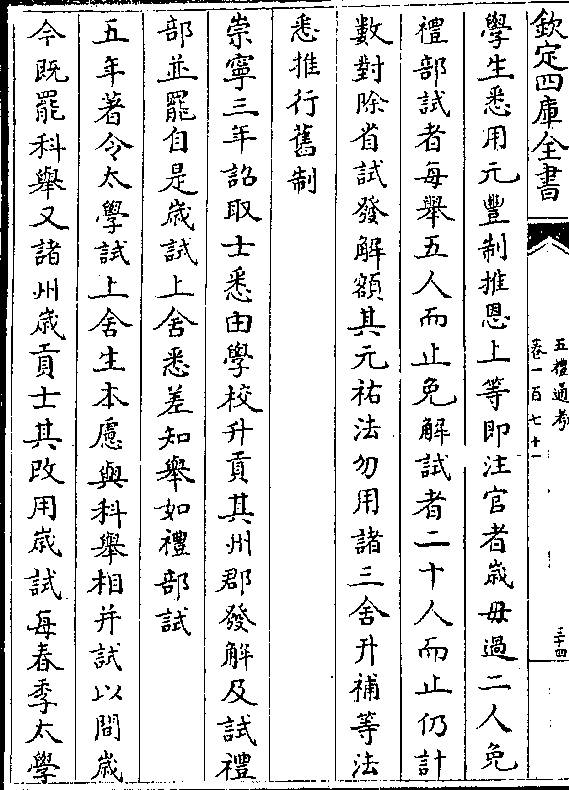 欽定四庫全書
五禮通考
卷一百七十一
三十四
學生悉用元豐制推恩上等即注官者歲毋過二人免
禮部試者每舉五人而止免解試者二十人而止仍計
數對除省試發解額其元祐法勿用諸三舍升補等法
悉推行舊制
崇寧三年詔取士悉由學校升貢其州郡發解及試禮
部並罷自是歲試上舍悉差知舉如禮部試
五年著令太學試上舍生本慮與科舉相并試以間歲
今既罷科舉又諸州歲貢士其改用歲試每春季太學